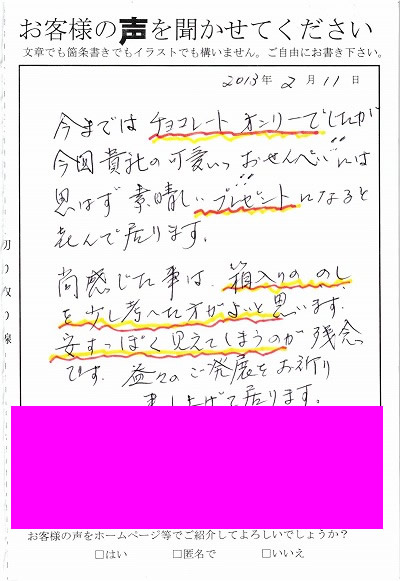 お客様の声を聞かせてください
文章でも箇条書きでもイラストでも構いません。ご自由にお書き下さい。
2013年 2月 11日
今までは チョコレートオンリーでしたが
今回貴社の可愛いっ おせんべいには
思はず 素晴しいプレゼントになると
喜んで居ります。
尚感じた事は、箱入りの のし
を少し考へた方がよいと思います。
安すっぽく見えてしまうのが 残念
です。益々のご発展をお祈り
申し上げて居ります。
切り取り線
お客様の声をホームページ等でご紹介してよろしいでしょうか？
□はい □匿名で □いいえ